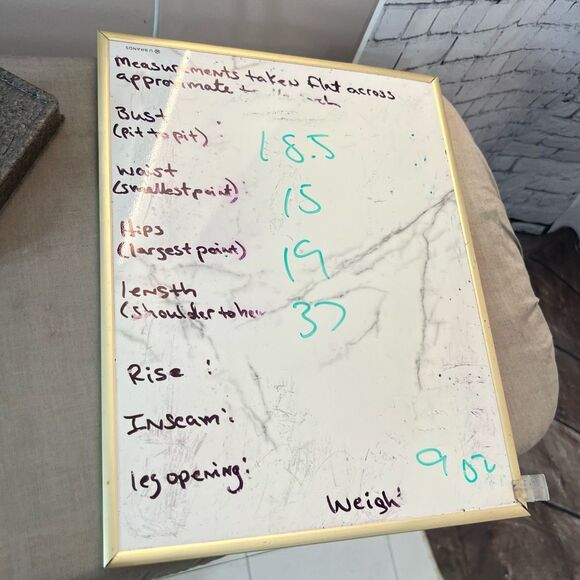 URBANOS
measurements taken flat across
approximate
Bust 18.5
(pit to pit)
waist 15
(smallest point)
Hips 19
(largest point)
length 37
(shoulder to hem
Rise :
Inseam:
leg opening:
9 oz
weigh: